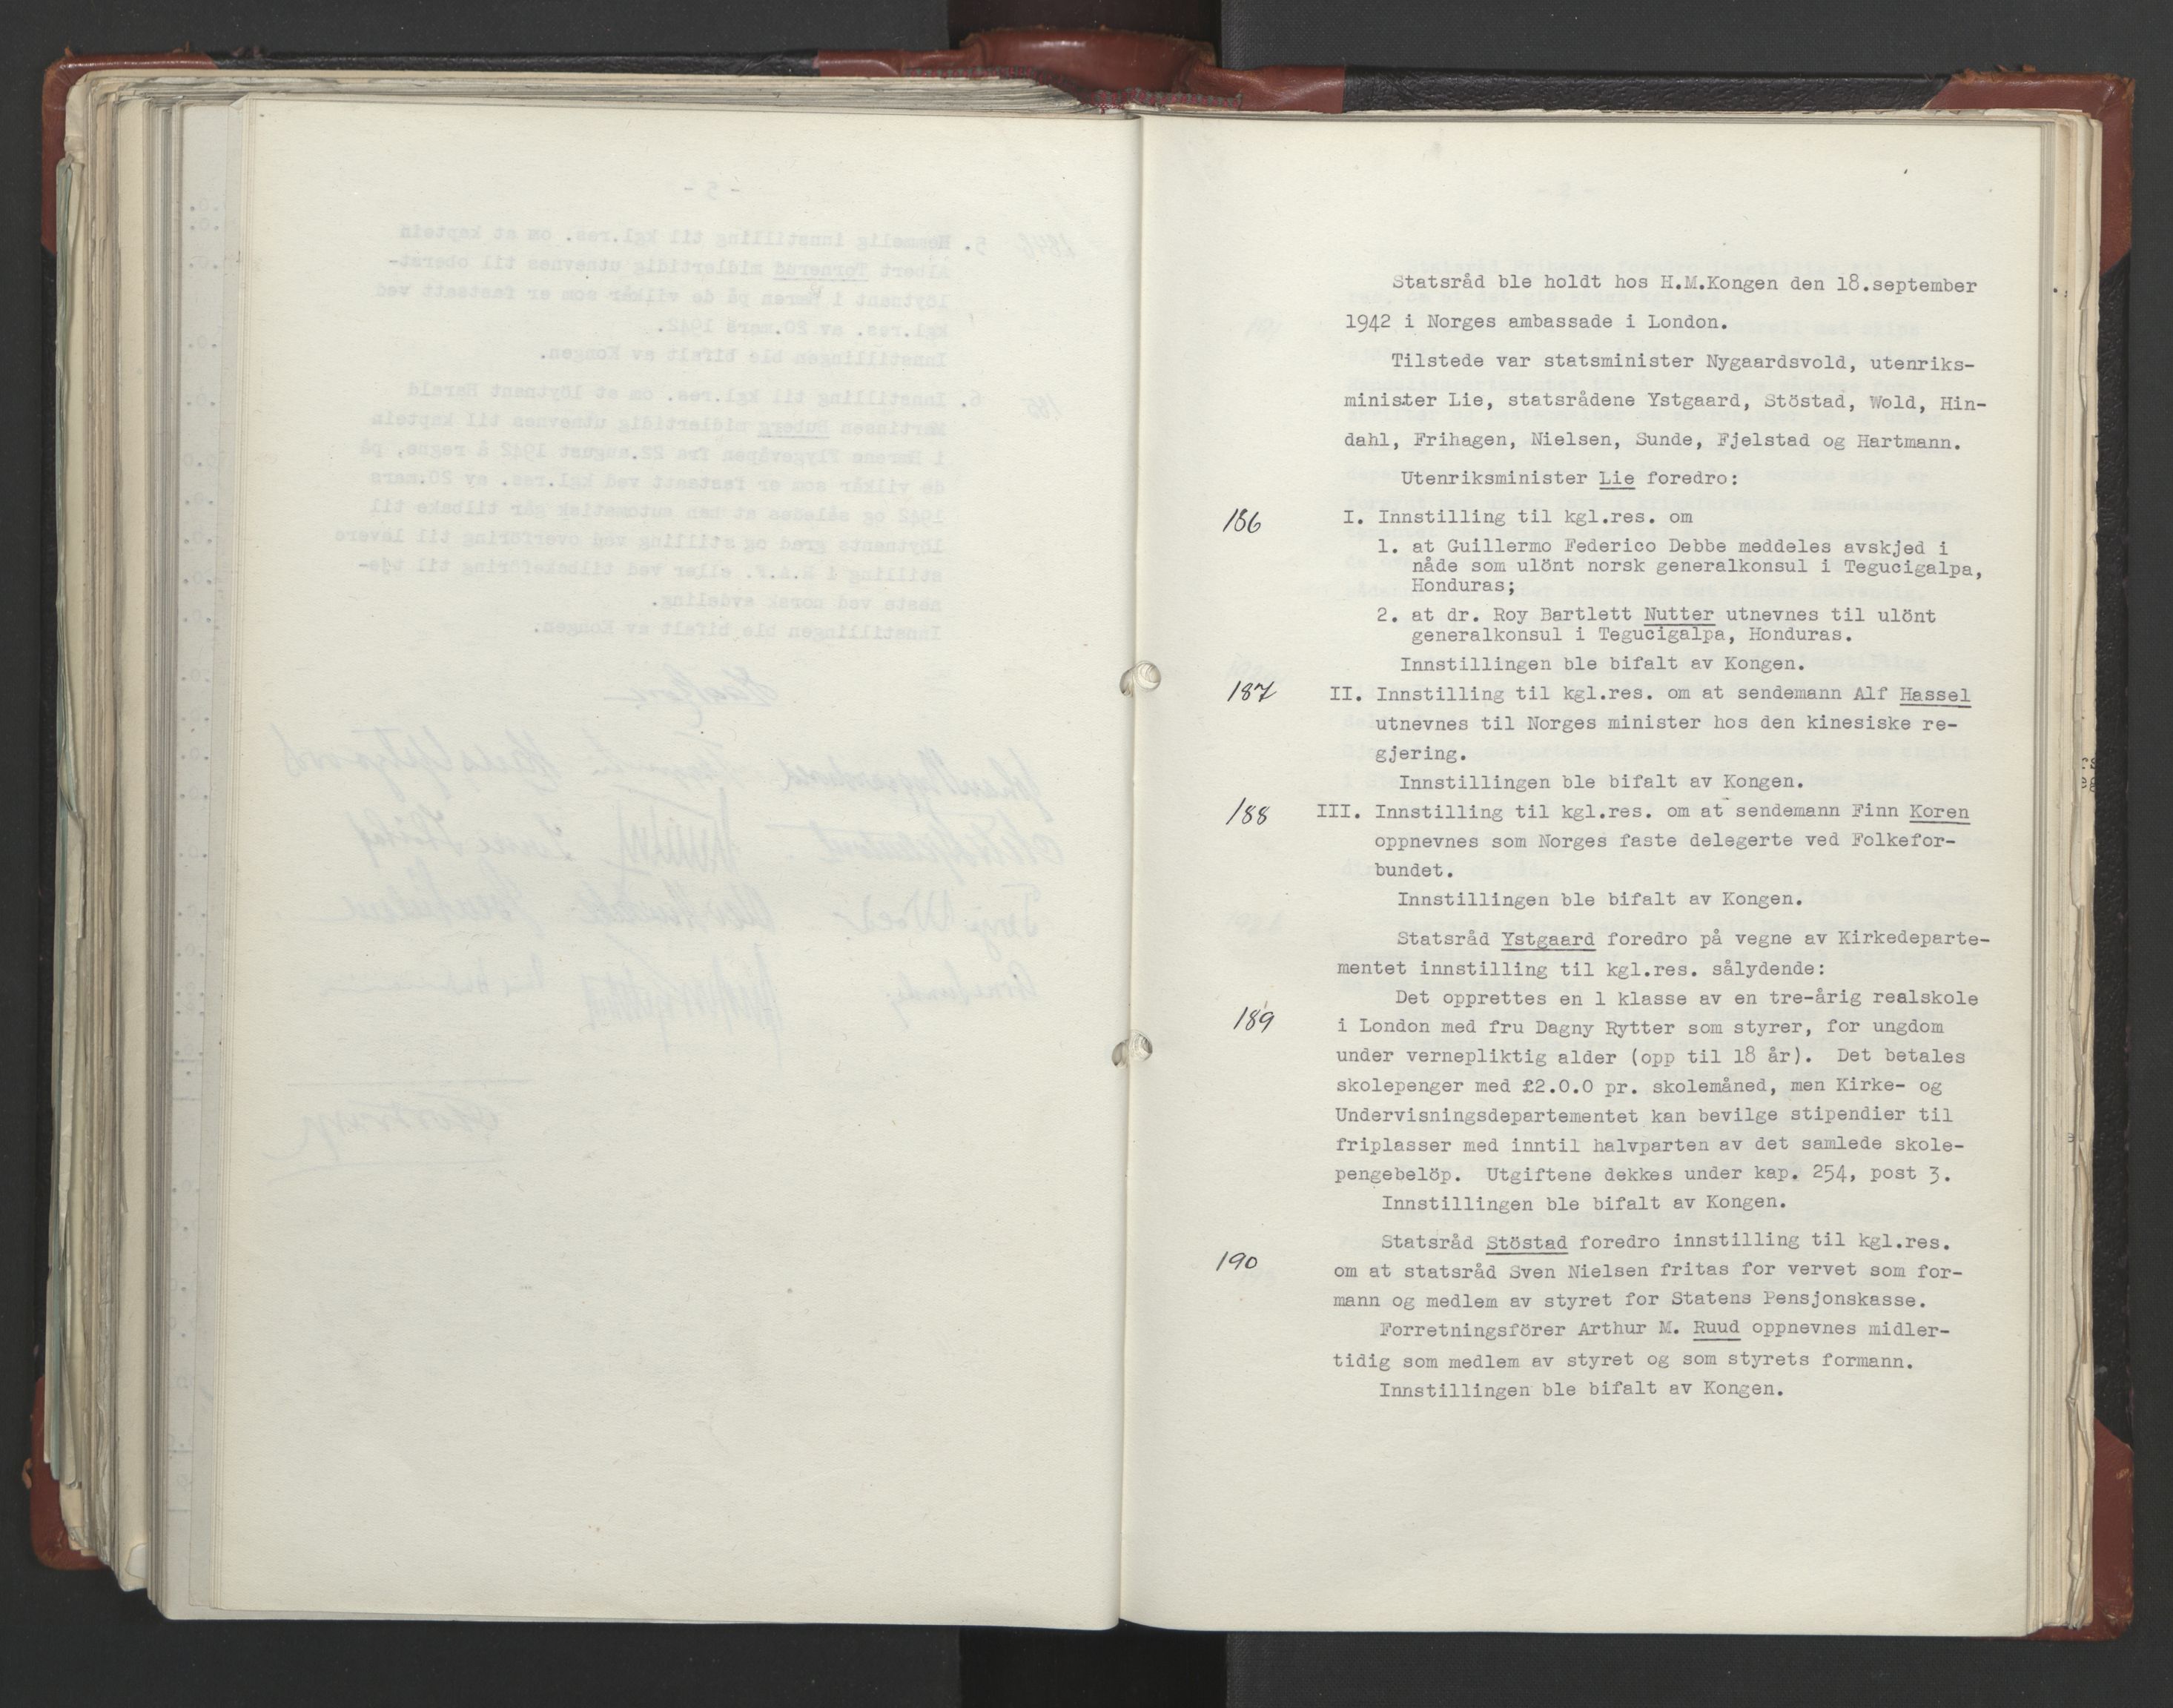 Statsråd ble holdt hos H.M.Kongen den 18.september
1942 i Norges ambassade i London.
Tilstede var statsminister Nygaardsvold, utenriks-
minister Lie, statsrådene Ystgaard, Støstad, Wold, Hin-
dahl, Frihagen, Nielsen, Sunde, Fjelstad og Hartmann.
Utenriksminister Lie foredro:
186 I. Innstilling til kgl.res. om
1. at Guillermo Federico Debbe meddeles avskjed i
nåde som ulönt norsk generalkonsul i Tegucigalpa,
Honduras;
2. at dr. Roy Bartlett Nutter utnevnes til ulönt
generalkonsul i Tegucigalpa, Honduras.
Innstillingen ble bifalt av Kongen.
187 II. Innstilling til kgl.res. om at sendemann Alf Hassel
utnevnes til Norges minister hos den kinesiske re-
gjering.
Innstillingen ble bifalt av Kongen.
188 III. Innstilling til kgl.res. om at sendemann Finn Koren
oppnevnes som Norges faste delegerte ved Folkefor-
bundet.
Innstillingen ble bifalt av Kongen.
Statsråd Ystgaard foredro på vegne av Kirkedeparte-
mentet innstilling til kgl.res. sålydende:
Det opprettes en 1 klasse av en tre-årig realskole
189 i London med fru Dagny Rytter som styrer, for ungdom
under vernepliktig alder (opp til 18 år). Det betales
skolepenger med £2.0.0 pr. skolemåned, men Kirke- og
Undervisningsdepartementet kan bevilge stipendier til
friplasser med inntil halvparten av det samlede skole-
pengebelöp. Utgiftene dekkes under kap. 254, post 3.
Innstillingen ble bifalt av Kongen.
Statsråd Stöstad foredro innstilling til kgl.res.
190 om at statsråd Sven Nielsen fritas for vervet som for-
mann og medlem av styret for Statens Pensjonskasse.
Forretningsförer Arthur M. Ruud oppnevnes midler-
tidig som medlem av styret og som styrets formann.
Innstillingen ble bifalt av Kongen.